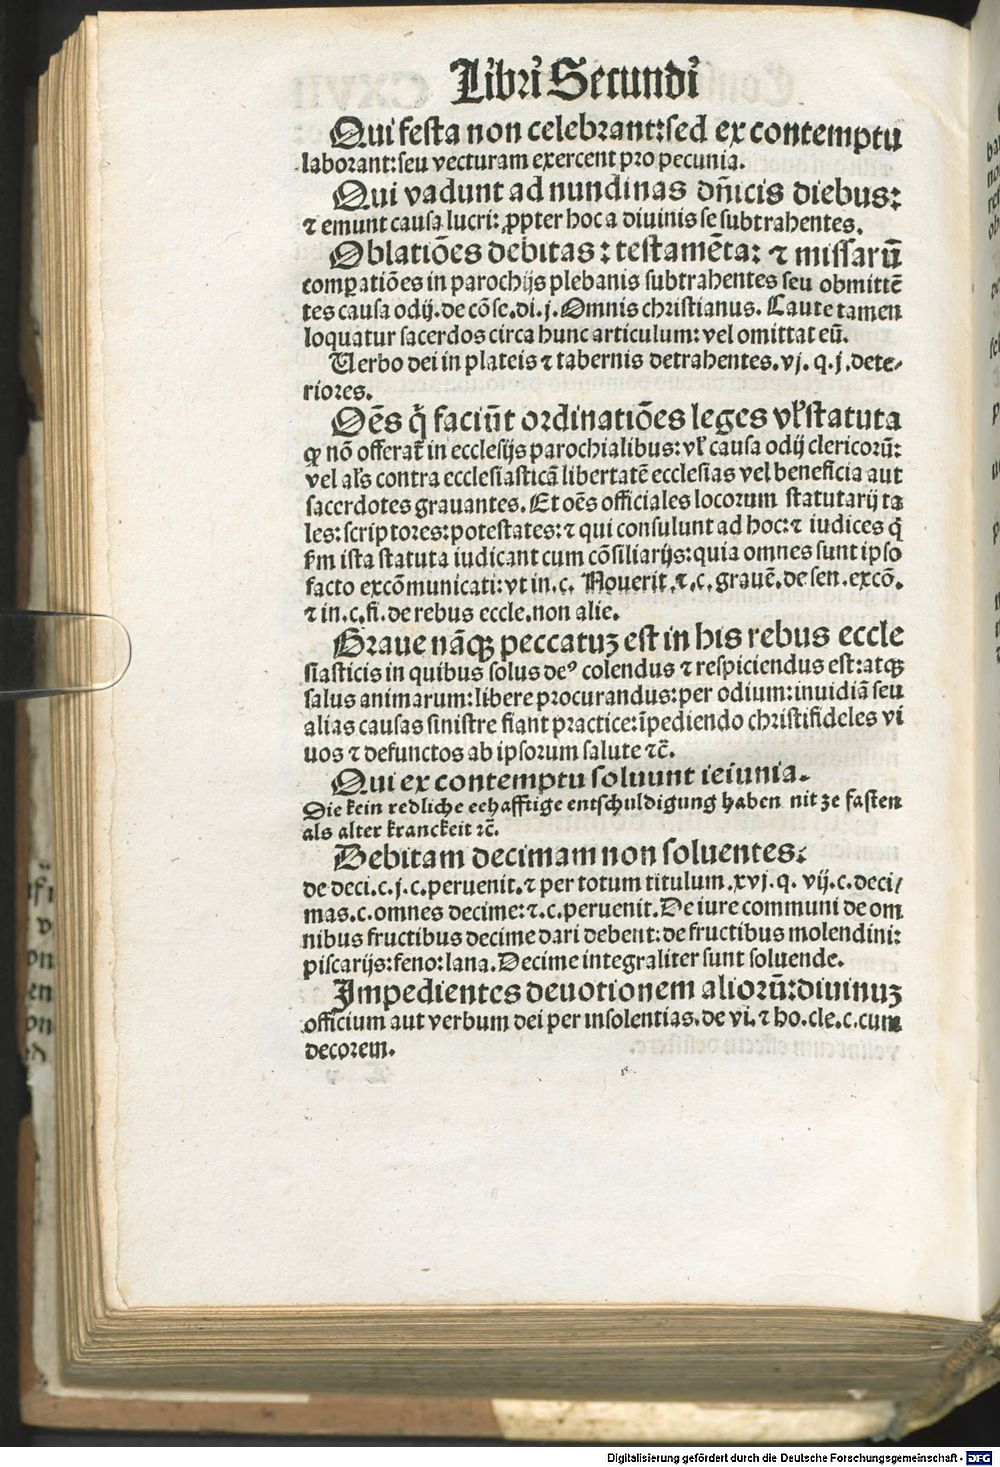 Libri Secundi
Qui festa non celebrant: sed ex contemptu
laborant: seu vecturam exercent pro pecunia.
Qui vadunt ad nundinas dñicis diebus:
⁊ emunt causa lucri: ꝓpter hoc a diuinis se subtrahentes.
Oblatiōes debitas: testamēta: ⁊ missarū
comꝑatiōes in parochijs plebanis subtrahentes seu obmittē
tes causa odij. de cōse. di. j. Omnis christianus. Caute tamen
loquatur sacerdos circa hunc articulum: vel omittat eū.
Uerbo dei in plateis ⁊ tabernis detrahentes. vj. q. j. dete⸗
riores.
Oēs q̄ faciūt ordinatiōes leges vl̓ statuta
ꝙ nō offerat̄ in ecclesijs parochialibus: vl̓ causa odij clericorū:
vel al̓s contra ecclesiasticā libertatē ecclesias vel beneficia aut
sacerdotes grauantes. Et oēs officiales locorum statutarij ta
les: scriptores: potestates: ⁊ qui consulunt ad hoc: ⁊ iudices q̄
ẜm ista statuta iudicant cum cōsiliarijs: quia omnes sunt ipso
facto excōmunicati: vt in. c. Nouerit. ⁊. c. grauē. de sen. excō.
⁊ in. c. fi. de rebus eccle. non alie.
Graue nāqꝫ peccatuꝫ est in his rebus eccle
siasticis in quibus solus deꝰ colendus ⁊ respiciendus est: atqꝫ
salus animarum: libere procurandus: per odium: inuidiā seu
alias causas sinistre fiant practice: īpediendo christifideles vi
uos ⁊ defunctos ab ipsorum salute ⁊c̄.
Qui ex contemptu soluunt ieiunia.
Die kein redliche eehafftige entschuldigung haben nit ze fasten
als alter kranckeit ⁊c̄.
Debitam decimam non soluentes:
de deci. c. j. c. peruenit. ⁊ per totum titulum. xvj. q. vij. c. deci/
mas. c. omnes decime: ⁊. c. peruenit. De iure communi de om
nibus fructibus decime dari debent: de fructibus molendini:
piscarijs: feno: lana. Decime integraliter sunt soluende.
Impedientes deuotionem aliorū: diuinuꝫ
officium aut verbum dei per insolentias. de vi. ⁊ ho. cle. c. cum
decorem.
Digitalisierung gefördert durch die Deutsche Forschungsgemeinschaft - DFG